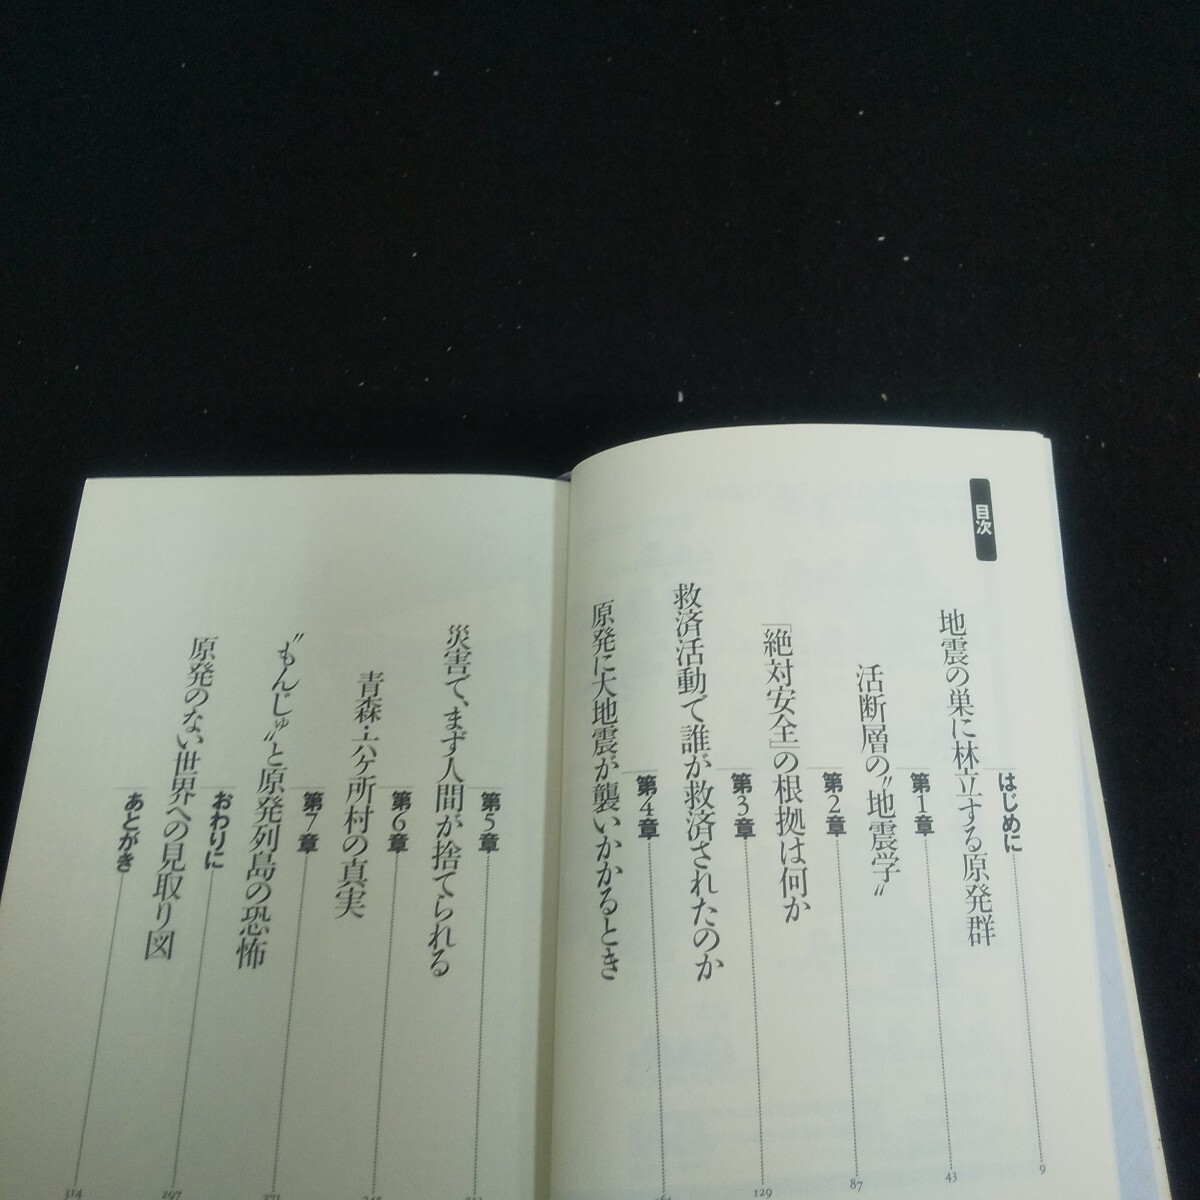 目次
はじめに 9
地震の巣に林立する原発群
第1章 43
活断層の〝地震学〟
第2章 87
「絶対安全」の根拠は何か
第3章 129
救済活動で誰が救済されたのか
第4章
原発に大地震が襲いかかるとき
第5章
災害で、まず人間が捨てられる
第6章
青森・六ヶ所村の真実
第7章 271
〝もんじゅ〟と原発列島の恐怖
おわりに 297
原発のない世界への見取り図
あとがき 314